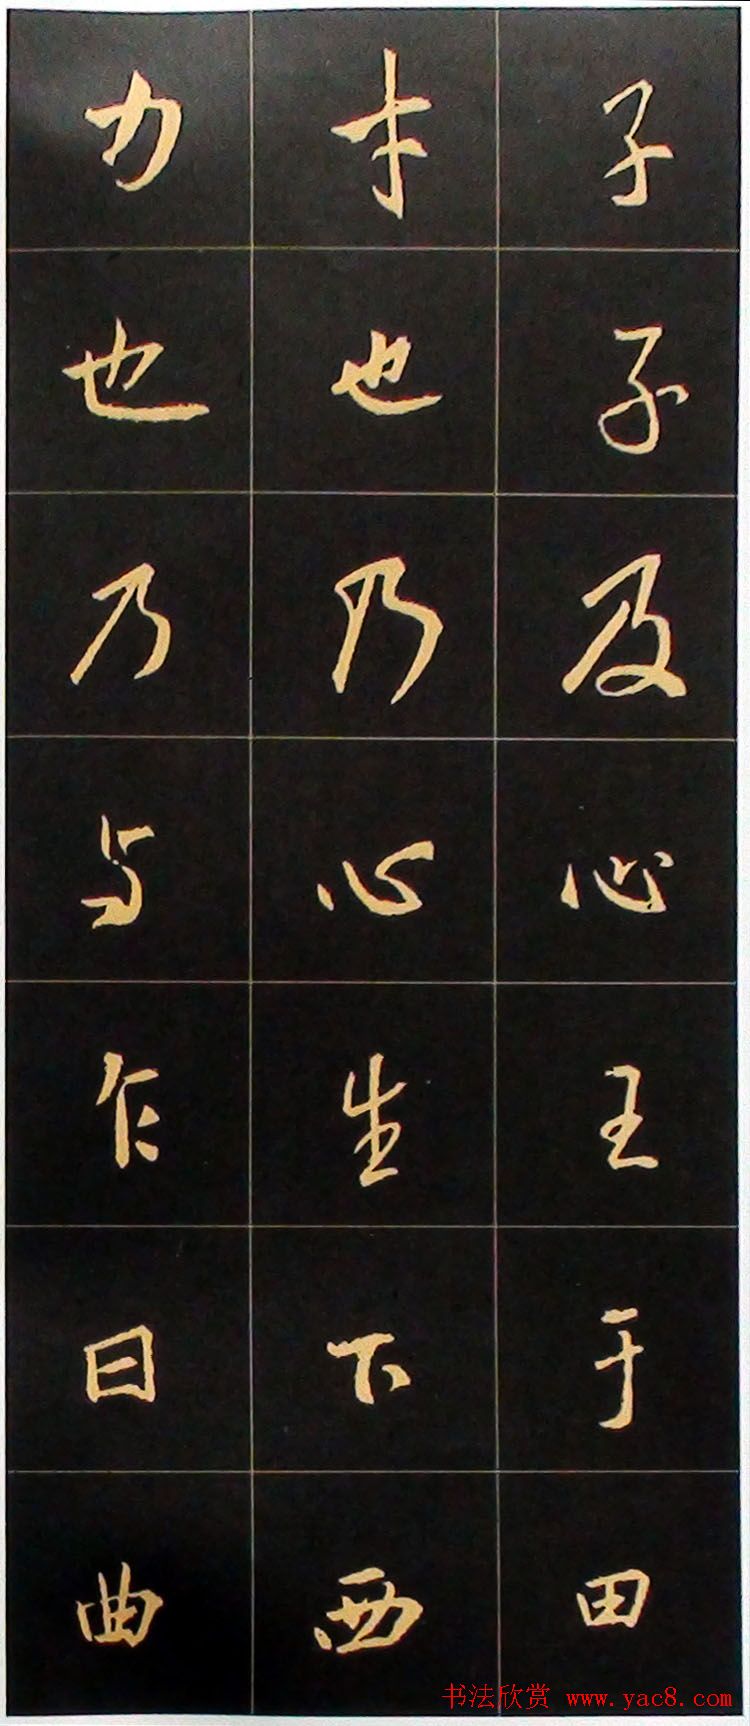 子子及心王于田
才也乃心生下西
力也乃与乍曰曲
书法欣赏 www.yac8.com